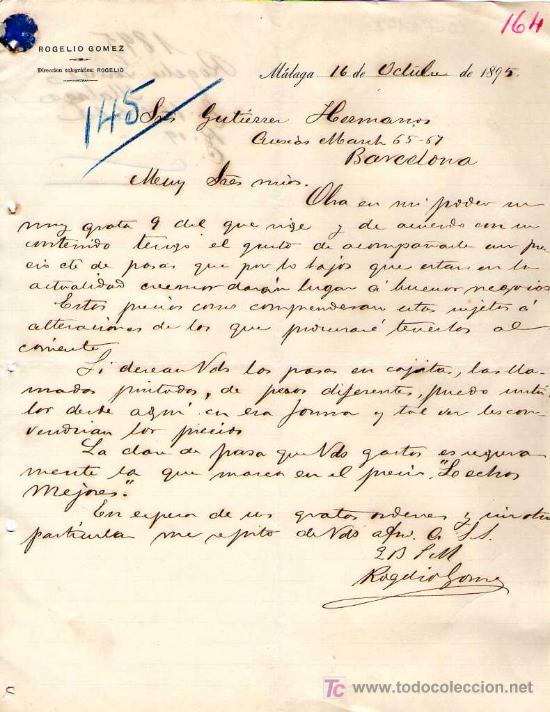 164
ROGELIO GOMEZ
Direccion telegráfica: ROGELIO
Málaga 16 de Octubre de 1895
145
Sres Gutiérrez Hermanos
March 65-67
Barcelona
Muy Sres mios.
Obra en mi poder su
muy grata 9 del que rige y de acuerdo con su
contenido tengo el gusto de acompañarle un pre
cio cte de pasas que por lo bajos que estan en la
actualidad creemos darán lugar á buenos negocios
Estos precios como comprenderan estan sujetos á
alteraciones de los que procuraré tenerlos al
corriente.
Si desean Vds las pasas en cajitas, las lla
madas pintadas, de pesos diferentes, puedo
desde aqui en esa forma y tal vez les con
vendrian los precios
La clase de pasa que Vds gastan es segura
mente la que marca en el precio "Lechos
Mejores."
En espera de sus gratas ordenes y sin otro
particular me repito de Vds S. S.
Q B S M
Rogelio Gomez
TC www.todocoleccion.net